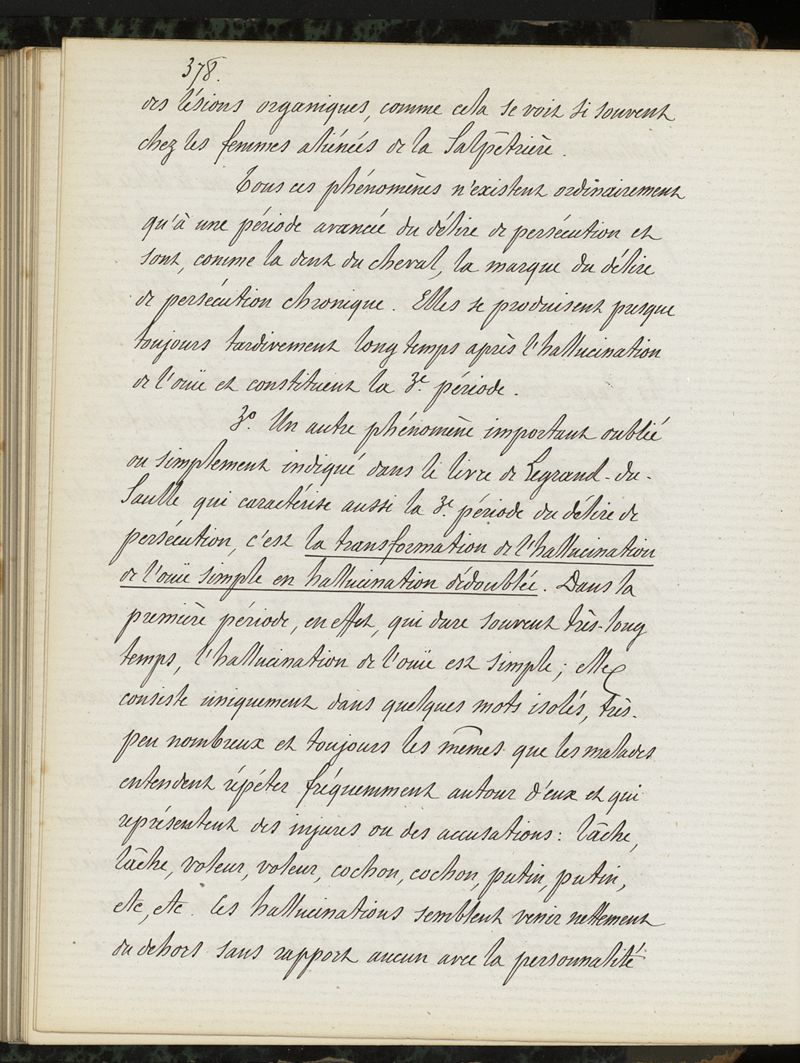 378.
des lésions organiques, comme cela se voit si souvent
chez les femmes aliénées de la Salpêtrière.
Tous ces phénomènes n'existent ordinairement
qu'à une période avancée du délire de persécution et
sont, comme la dent du cheval, la marque du délire
de persécution chronique. Elles se produisent presque
toujours tardivement longtemps après l'hallucination
de l'ouïe et constituent la 3e période.
3o. Un autre phénomène important oublié
ou simplement indiqué dans le livre de Legrand-du-
Saulle qui caractérise aussi la 3e période du délire de
persécution, c'est la transformation de l'hallucination
de l'ouïe simple en hallucination dédoublée. Dans la
première période, en effet, qui dure souvent très-long
temps, l'hallucination de l'ouïe est simple; elle
consiste uniquement dans quelques mots isolés, très-
peu nombreux et toujours les mêmes que les malades
entendent répéter fréquemment autour d'eux et qui
représentent des injures ou des accusations: lâche,
lâche, voleur, voleur, cochon, cochon, putin, putin,
etc, etc. Ces hallucinations semblent venir nettement
du dehors sans rapport aucun avec la personnalité